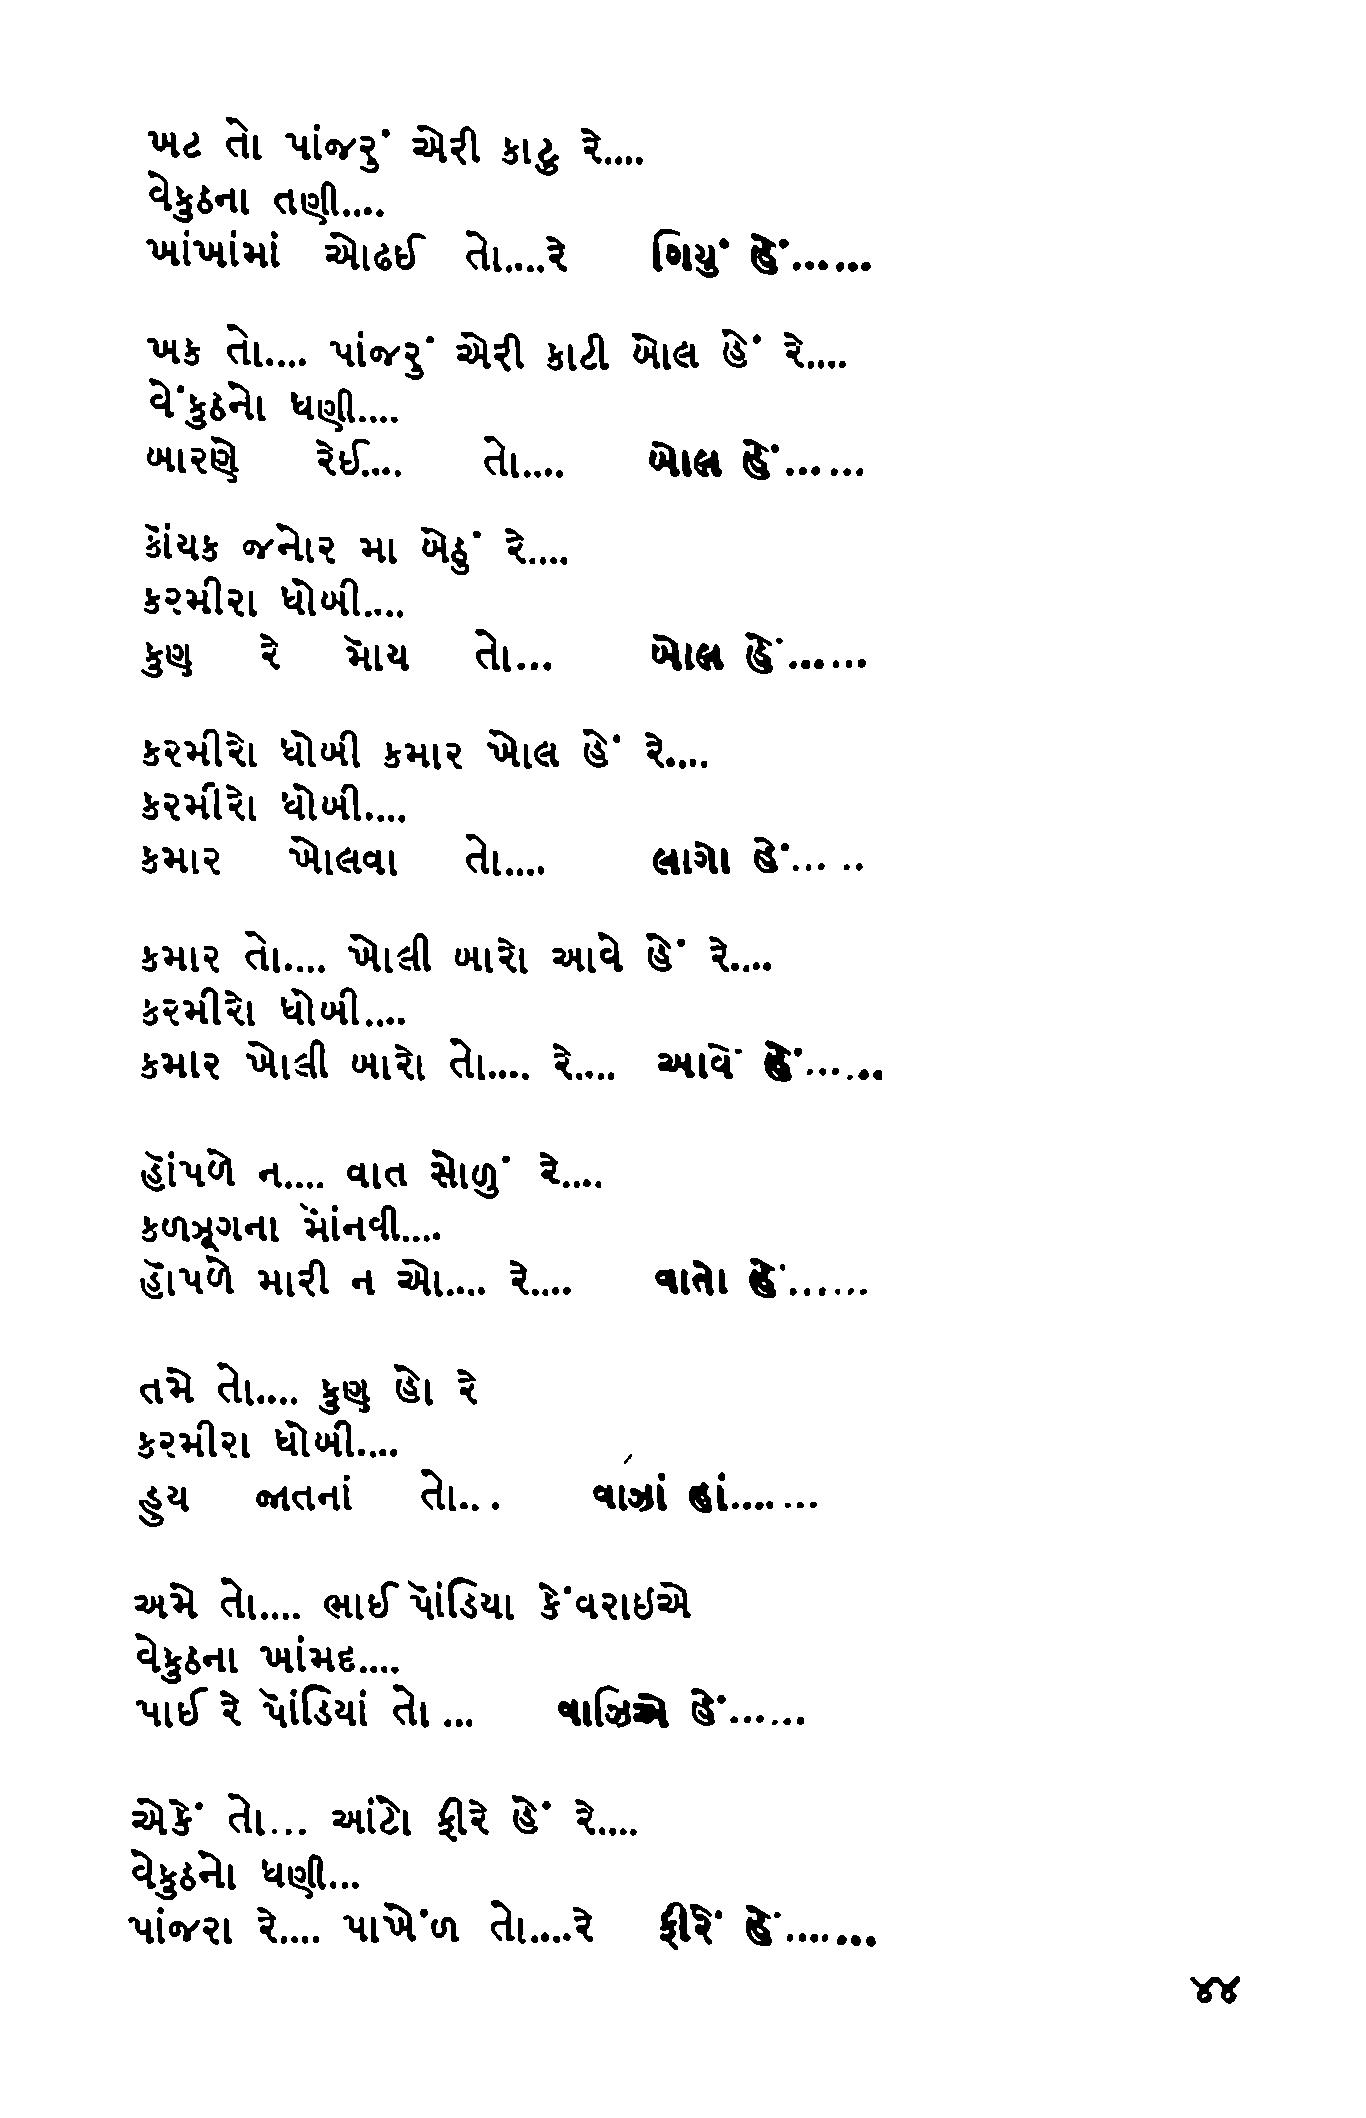 ખટ તો પાંજરું એરી કાટુ રે....
વેકુઠના તણી....
ખાંખાંમાં ઓઢઈ તો....રે ગિયું હેં......
ખક તો.... પાંજરું એરી કાટી બોલ હેં રે....
વેંકુઠનો ધણી....
બારણે રેઈ.... તો.... બોલ હેં......
કૉંયક જનોર મા બેઠું રે....
કરમીરા ધોબી....
કુણ રે મૉય તો... બોલ હેં......
કરમીરો ધોબી કમાર ખોલ હેં રે....
કરમીરો ધોબી....
કમાર ખોલવા તો.... લાગો હેં... ..
કમાર તો.... ખોલી બારો આવે હેં રે....
કરમીરો ધોબી....
કમાર ખોલી બારો તો.... રે.... આવેં હેં......
હૉંપળે ન.... વાત સોળું રે....
કળઝૂગના મૉંનવી....
હૉપળે મારી ન ઓ.... રે.... વાતો હેં......
તમે તો.... કુણ હો રે
કરમીરા ધોબી....
હુય જાતનાં તો... વાઝાં હાં.......
અમે તો.... ભાઈ પૉંડિયા કેંવરાઇએ
વેકુઠના ખાંમદ....
પાઈ રે પૉંડિયાં તો ... વાઝિએ હેં......
એકેં તો... આંટો ફીરે હેં રે....
વેકુઠનો ધણી...
પાંજરા રે.... પાખેંળ તો....રે ફીરેં હેં.......
૪૪